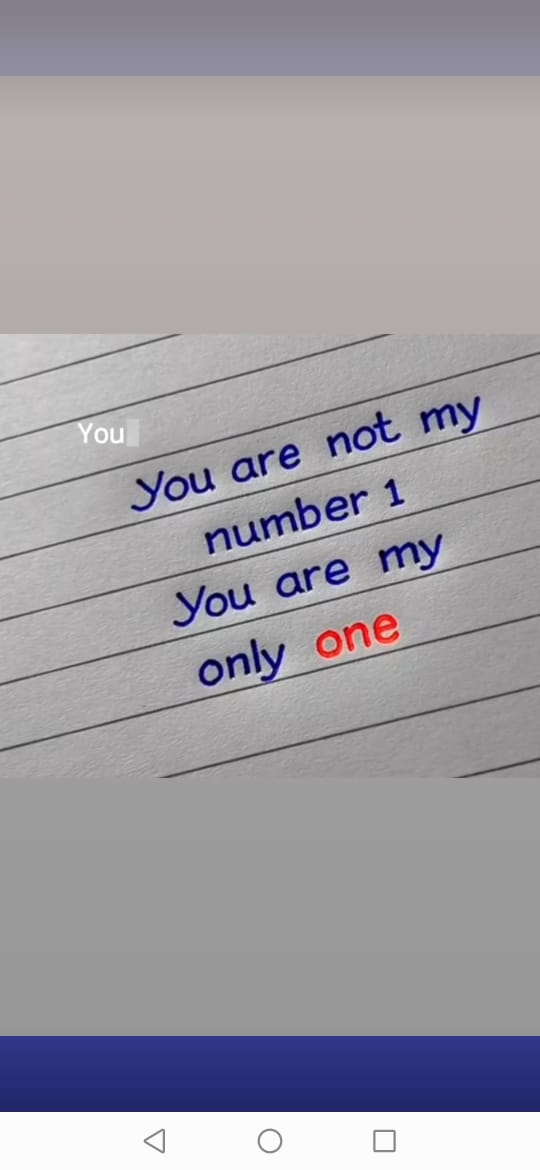 You
You are not my
number 1
You are my
only one